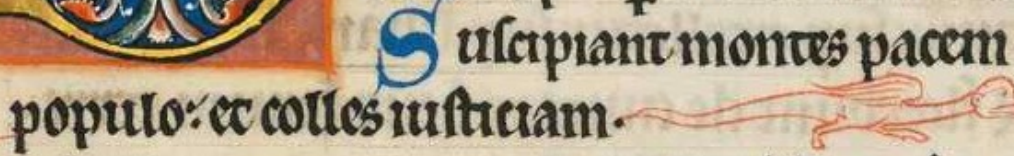 Suscipiant montes pacem
populo: et colles iusticiam.